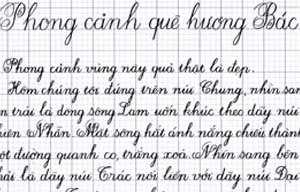 Phong cảnh quê hương Bác
Phong cảnh vùng này quả thật là đẹp.
Hôm chúng tôi đứng trên núi Chung, nhìn san
trái là dòng sông Lam uốn khúc theo dãy núi
Nhẫn. Mặt sông hắt ánh nắng chiếu thành
đường quanh co, trắng xoá. Nhìn sang bên
là dãy núi Trác nối liền với dãy núi Đại